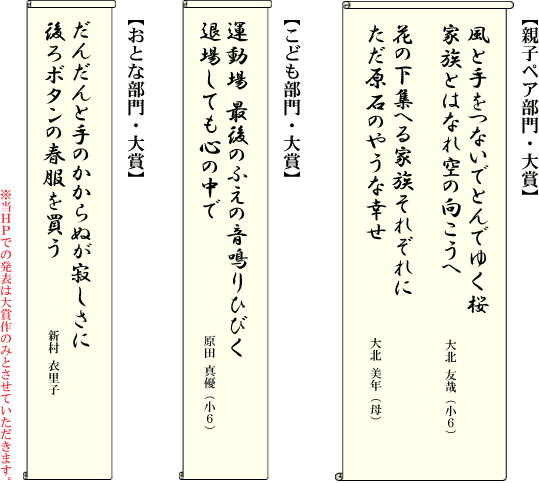 【親子ペア部門・大賞】
風と手をつないでとんでゆく桜
家族とはなれ空の向こうへ
大北 友哉（小６）
花の下集へる家族それぞれに
ただ原石のやうな幸せ
大北 美年（母）
【こども部門・大賞】
運動場 最後のふえの音鳴りひびく
退場しても心の中で
原田 真優（小６）
【おとな部門・大賞】
だんだんと手のかからぬが寂しさに
後ろボタンの春服を買う
新村 衣里子
※当ＨＰでの発表は大賞作のみとさせていただきます。